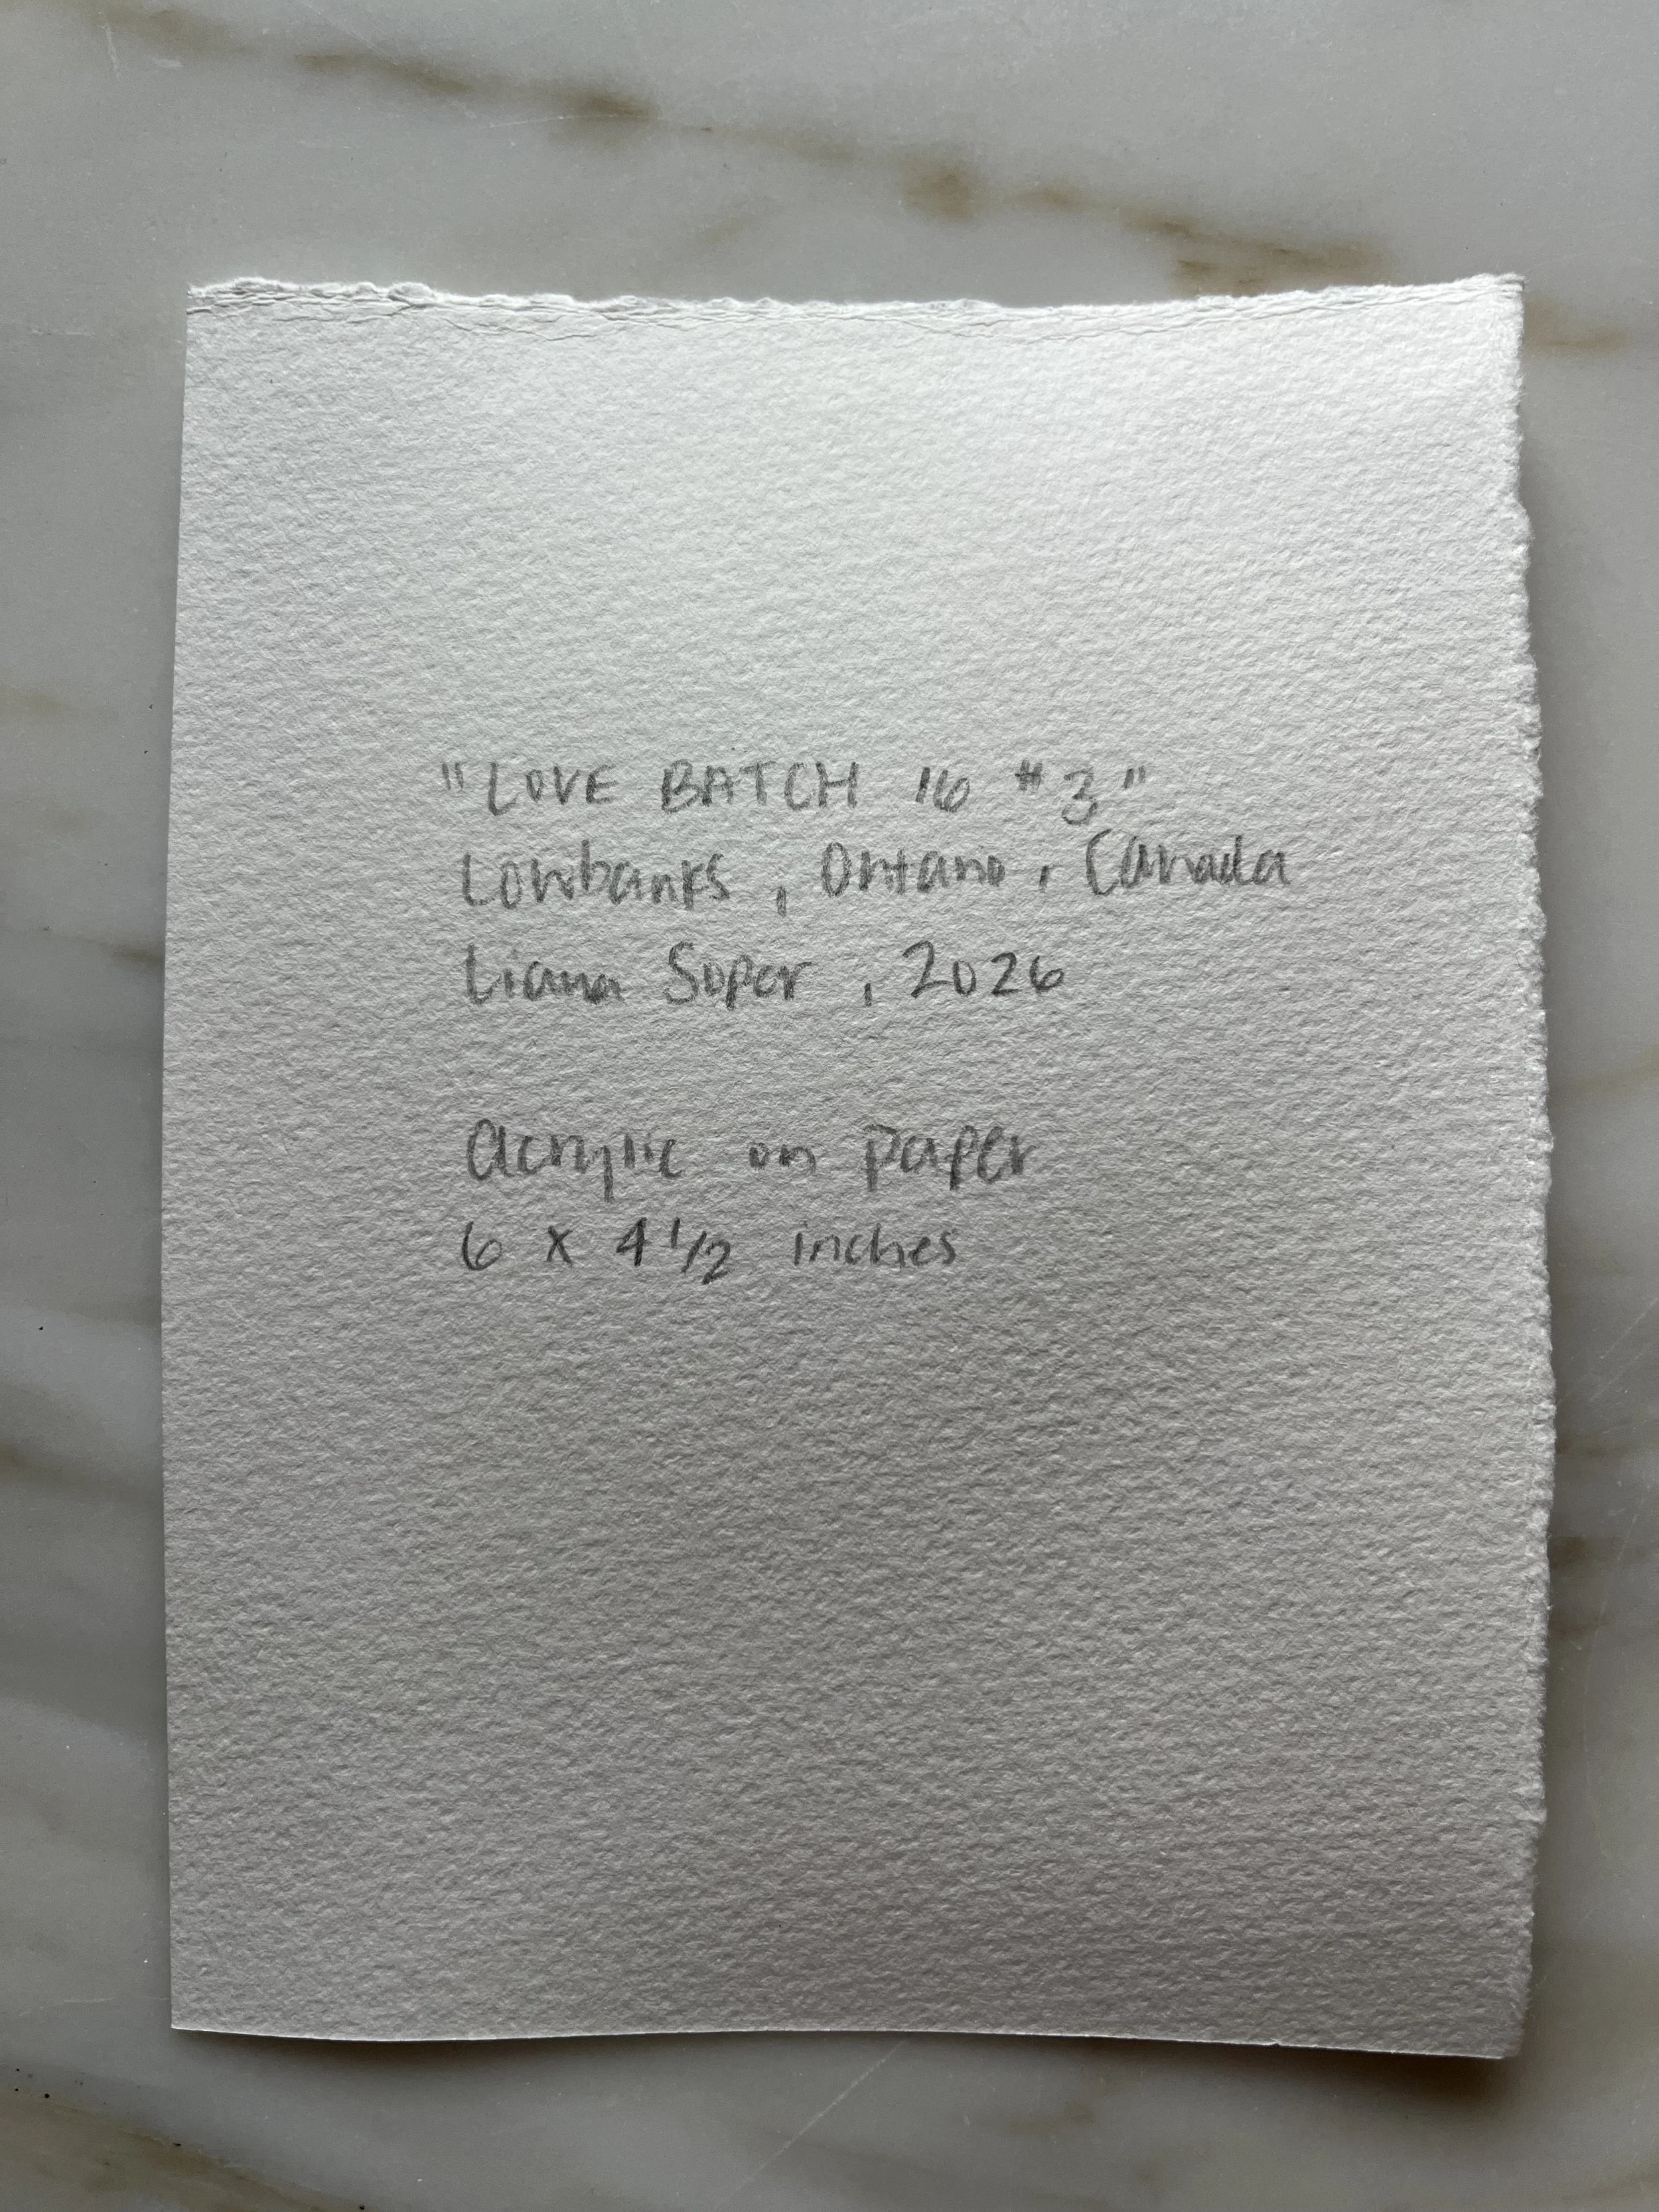 "LOVE BATCH 16 #3"
Lowbanks, Ontario, Canada
Liana Soper, 2026
acrylic on paper
6 x 4 1/2 inches